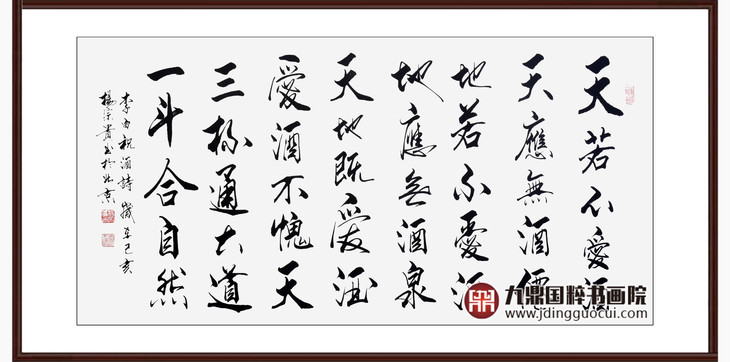 天若不愛酒
天應無酒僊
地若不愛酒
地應無酒泉
天地既愛酒
愛酒不愧天
三杯通大道
一斗合自然
李白祝酒詩 歲在己亥
楊貴書於北京
九鼎国粹书画院
www.jdingguocui.com